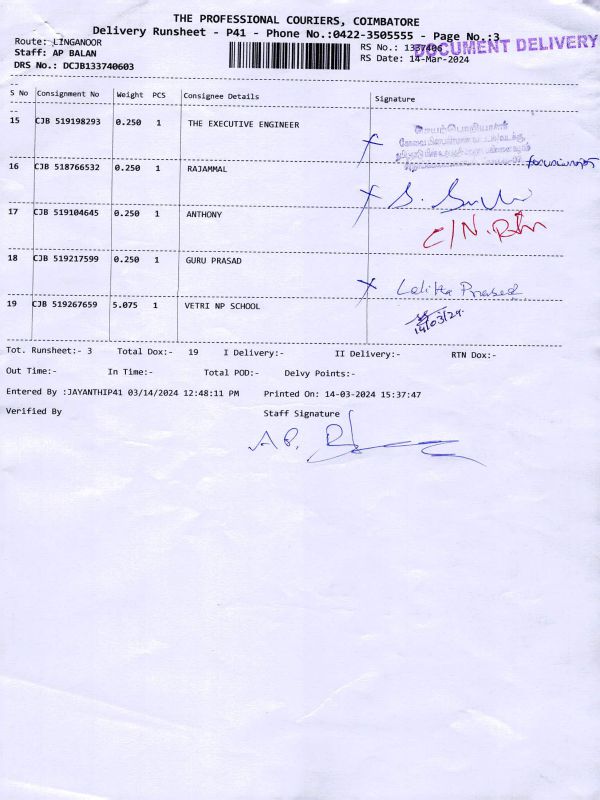 THE PROFESSIONAL COURIERS, COIMBATORE
Delivery Runsheet - P41 - Phone No.:0422-3505555 - Page No.:3
Route: LINGANOOR RS No.: 1337406
DOCUMENT DELIVERY
Staff: AP BALAN RS Date: 14-Mar-2024
DRS No.: DCJB133740603
S No Consignment No Weight PCS Consignee Details Signature
15 CJB 519198293 0.250 1 THE EXECUTIVE ENGINEER
16 CJB 518766532 0.250 1 RAJAMMAL
17 CJB 519104645 0.250 1 ANTHONY
C/N.
18 CJB 519217599 0.250 1 GURU PRASAD
Lalitha Prasad
19 CJB 519267659 5.075 1 VETRI NP SCHOOL
14/03/24
Tot. Runsheet:- 3 Total Dox:- 19 I Delivery:- II Delivery:- RTN Dox:-
Out Time:- In Time:- Total POD:- Delvy Points:-
Entered By :JAYANTHIP41 03/14/2024 12:48:11 PM Printed On: 14-03-2024 15:37:47
Verified By Staff Signature